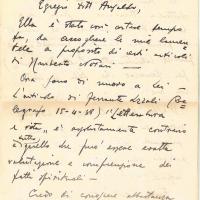 Egregio Dott. Ansaldo,
Ella è stato così cortese tempo
fa, da accogliere le mie lamen
tele a proposito di certi articoli
di Umberto Notari —
Ora sono di nuovo a Lei —
L'articolo di Ferrante Azzali (Te
legrafo 15-4-38) "Letteratura
e vita", è assolutamente contrario
tutto
a quello che può essere esatta
valutazione e comprensione dei
fatti spirituali —
Credo di conoscere abbastanza